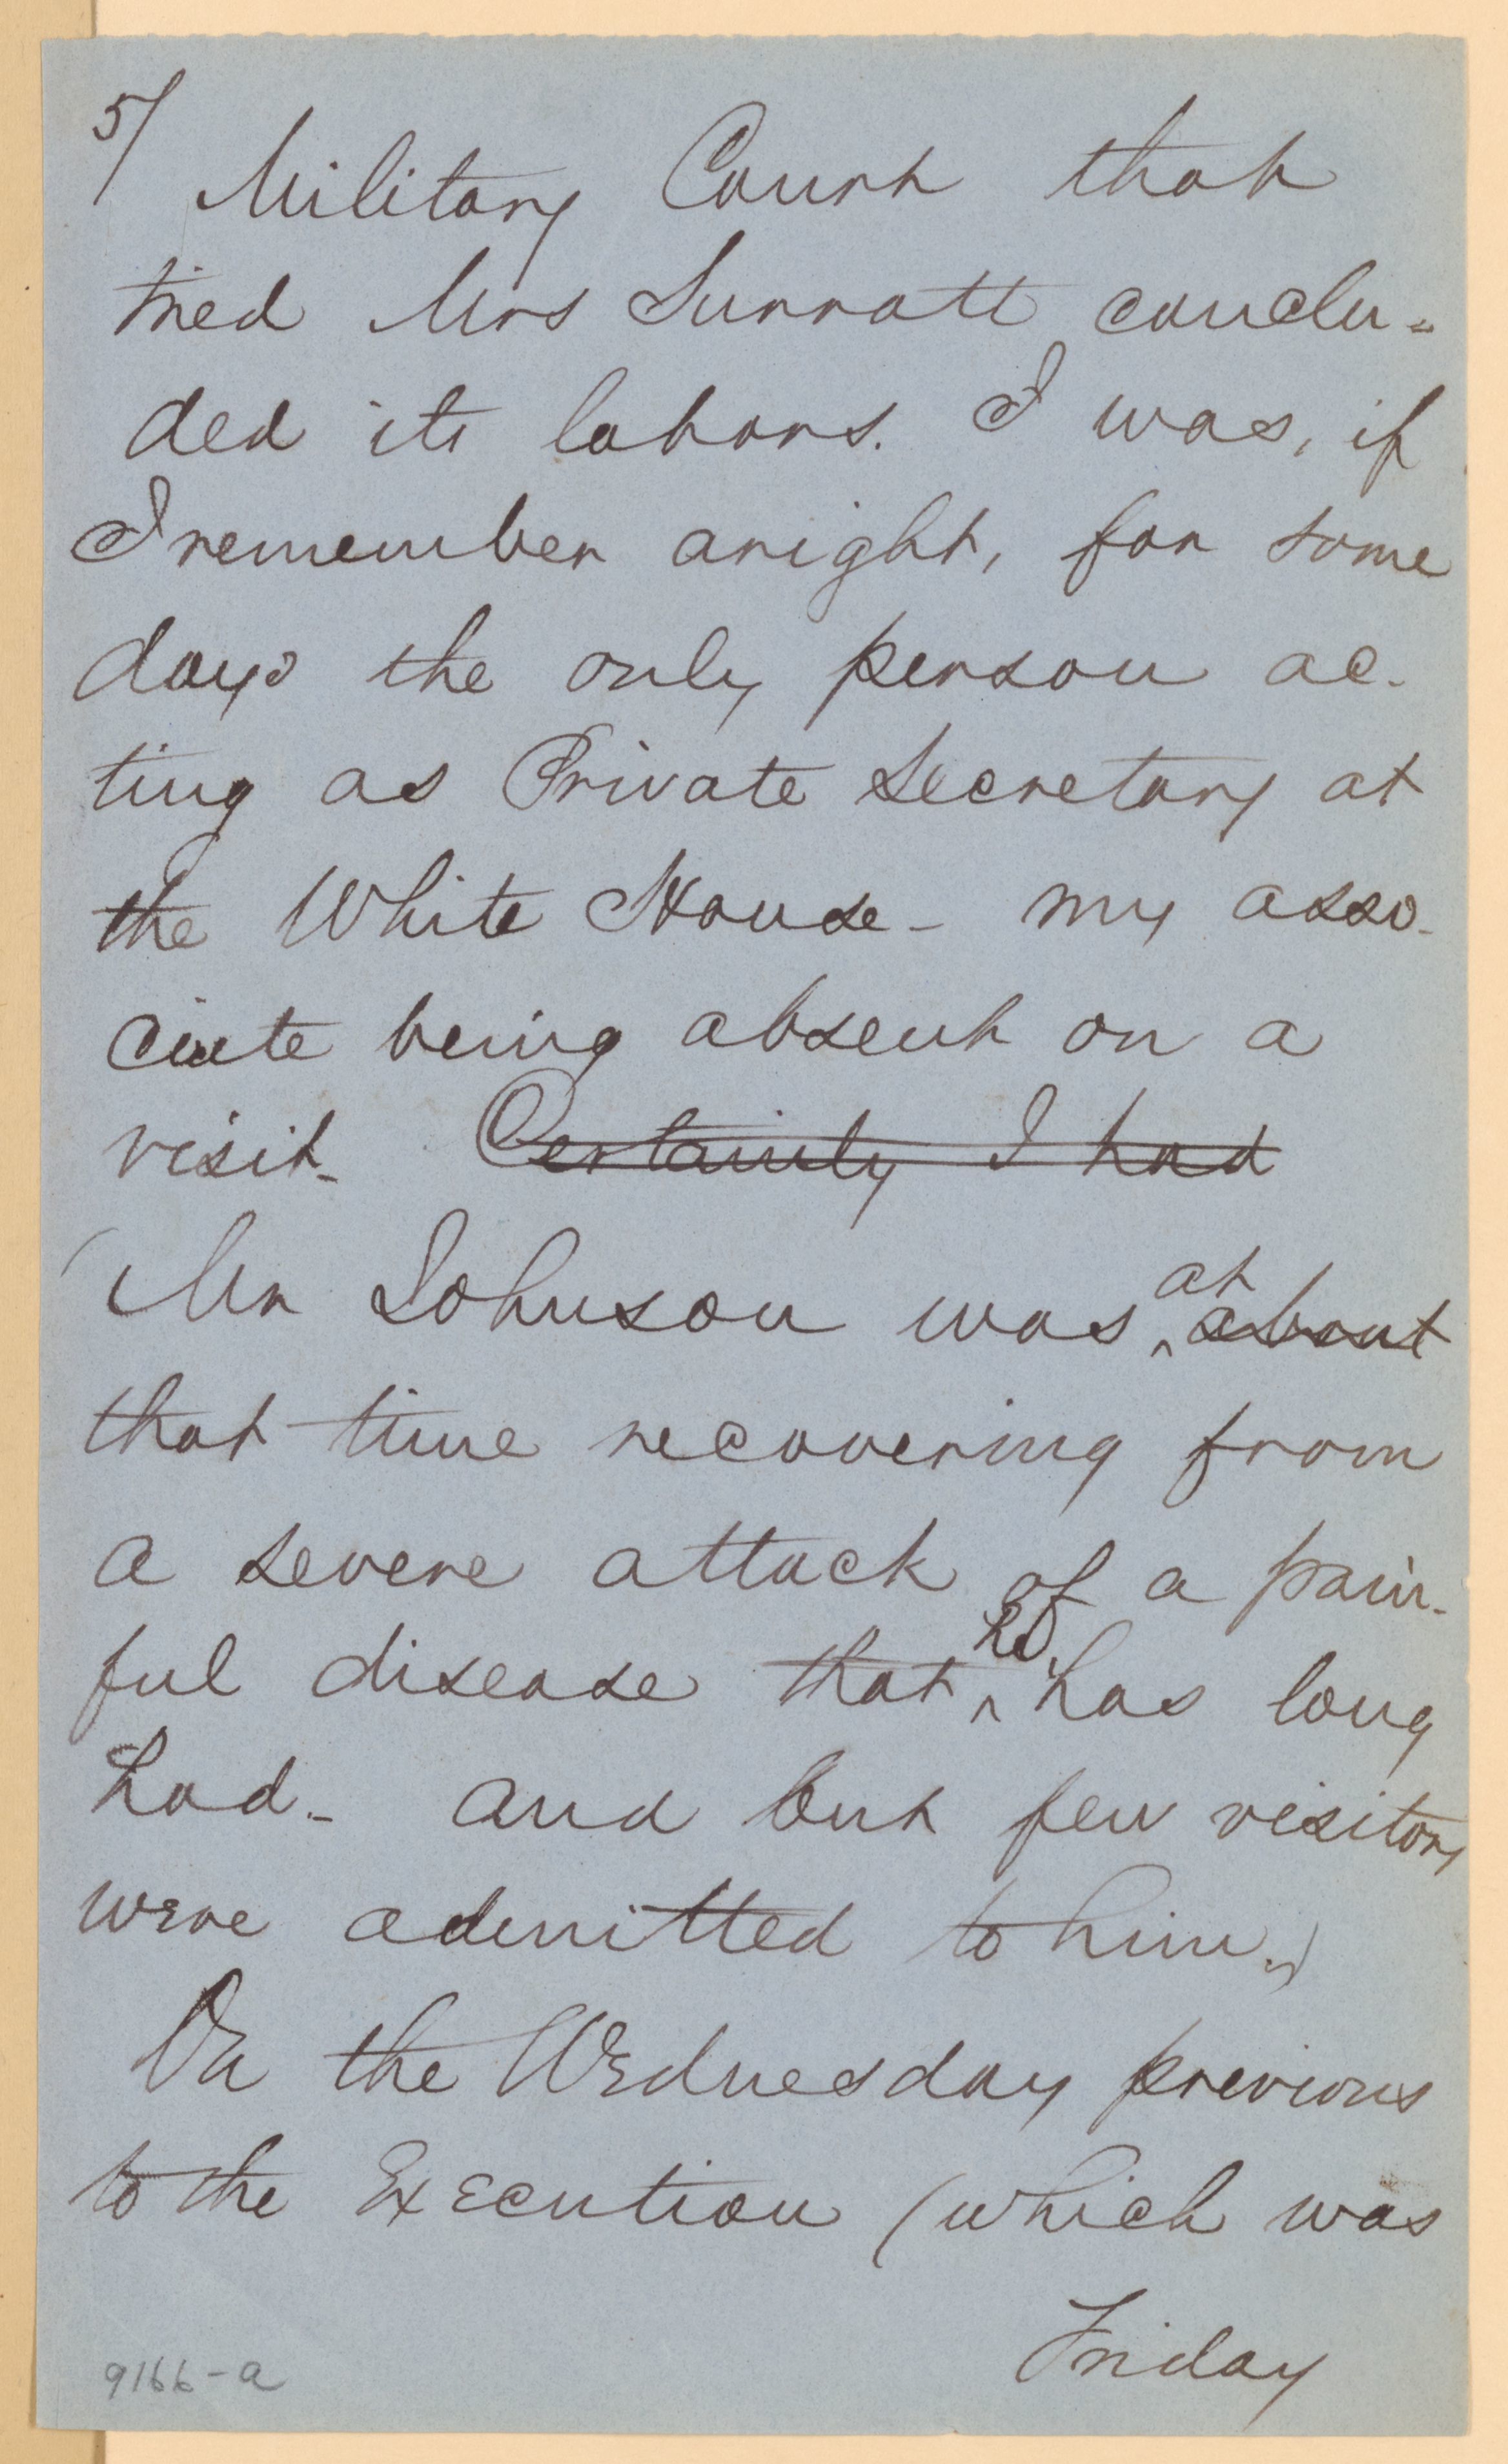 5/
Military Court that
tried Mrs Surratt conclu-
ded its labors. I was, if
I remember aright, for some
days the only person ac-
ting as Private Secretary at
the White House - my asso-
ciate being absent on a
visit - Certainly I had
(Mr Johnson was ^ at about
that time recovering from
a severe attack of a pain-
ful disease that ^ he has long
had - and but few visitors
were admitted to him.)
On the Wednesday previous
to the Execution (which was
Friday
9166-a